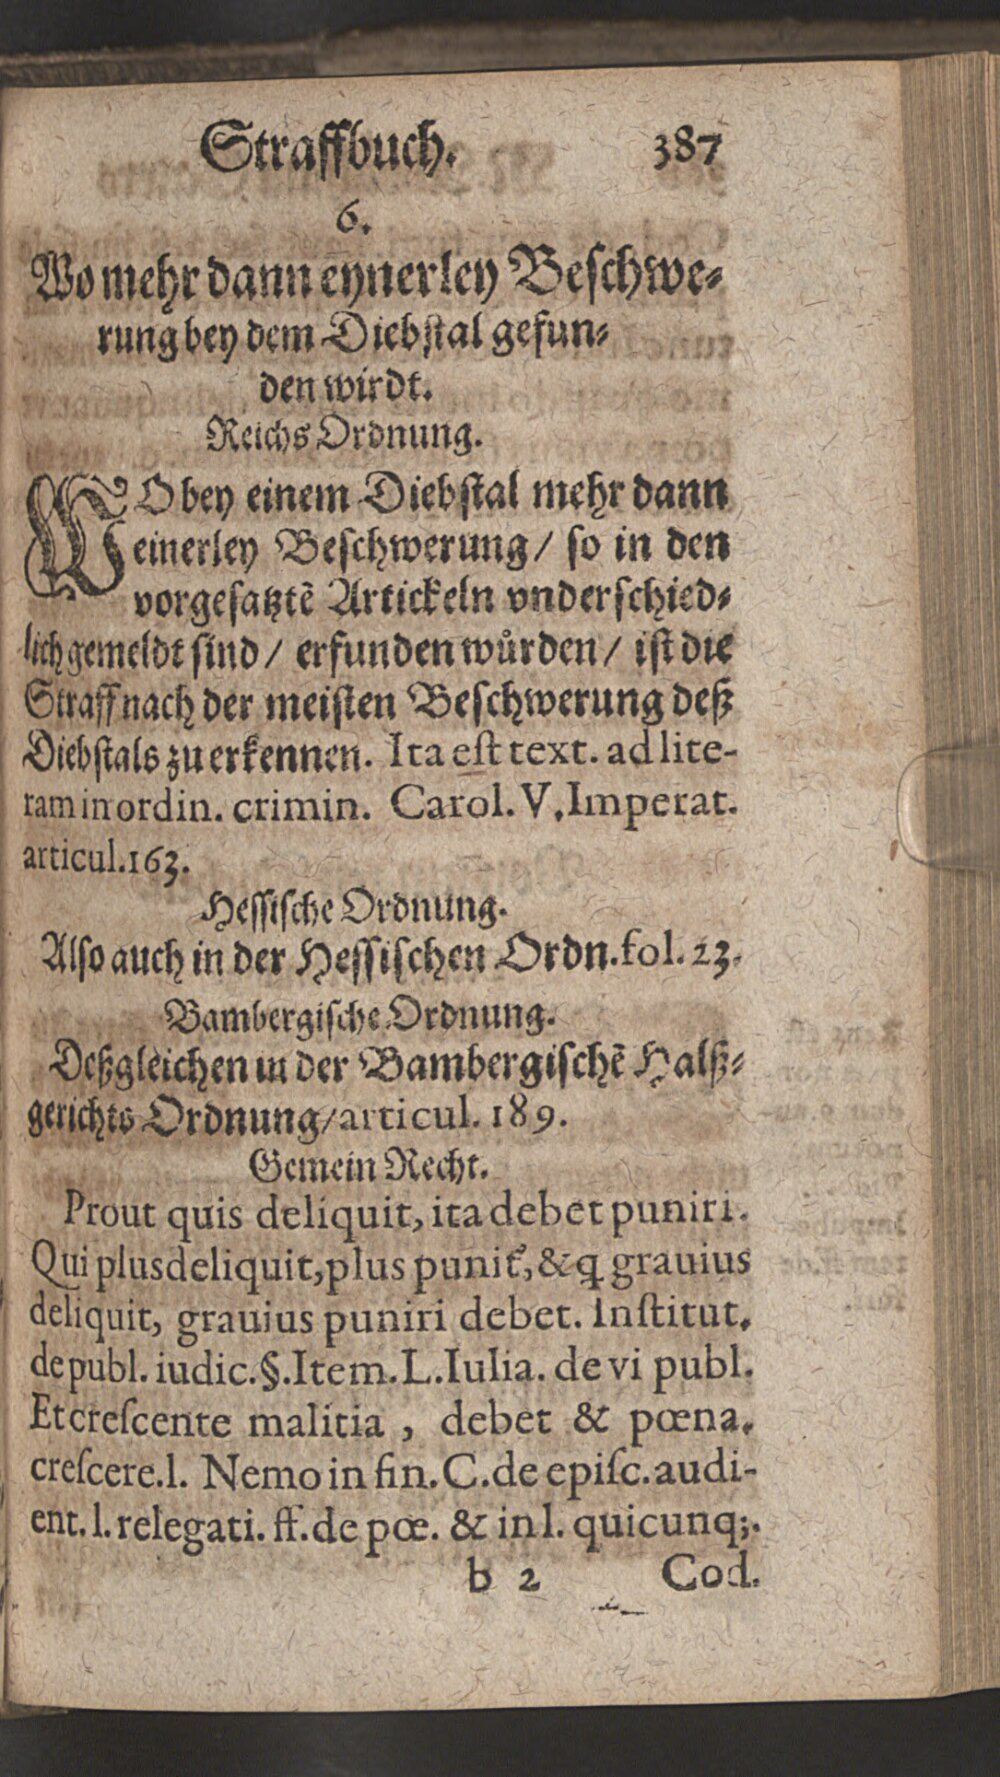 Straffbuch. 387
6.
Wo mehr dann eynerley Beschwe-
rung bey dem Diebstal gefun-
den wirdt.
Reichs Ordnung.
WO bey einem Diebstal mehr dann
einerley Beschwerung / so in den
vorgesatztẽ Artickeln vnderschied-
lich gemeldt sind / erfunden wuͤrden / ist die
Straff nach der meisten Beschwerung deß
Diebstals zu erkennen. Ita est text. ad lite-
ram in ordin. crimin. Carol. V. Imperat.
articul. 163.
Hessische Ordnung.
Also auch in der Hessischen Ordn. fol. 23.
Bambergische Ordnung.
Deßgleichen in der Bambergischẽ Halß-
gerichts Ordnung / articul. 189.
Gemein Recht.
Prout quis deliquit, ita debet puniri.
Qui plus deliquit, plus punit᷑, & q grauius
deliquit, grauius puniri debet. Institut.
de publ. iudic. §. Item. L. Iulia. de vi publ.
Et crescente malitia , debet & pœna.
crescere. l. Nemo in fin. C. de episc. audi-
ent. l. relegati. ff. de pœ. & in l. quicunq;.
b 2 Cod.